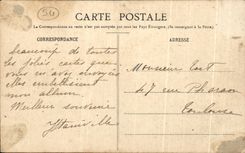 54
CARTE POSTALE
La Correspondance au recto n'est pas acceptée par tous les Pays Étrangers. (Se renseigner à la Poste).
CORRESPONDANCE
ADRESSE
beaucoup de toutes
les jolies cartes que
vous m'avez envoyés
Elles embellissent
mon album.
Meilleur souvenir
Monsieur
47 rue
Toulouse